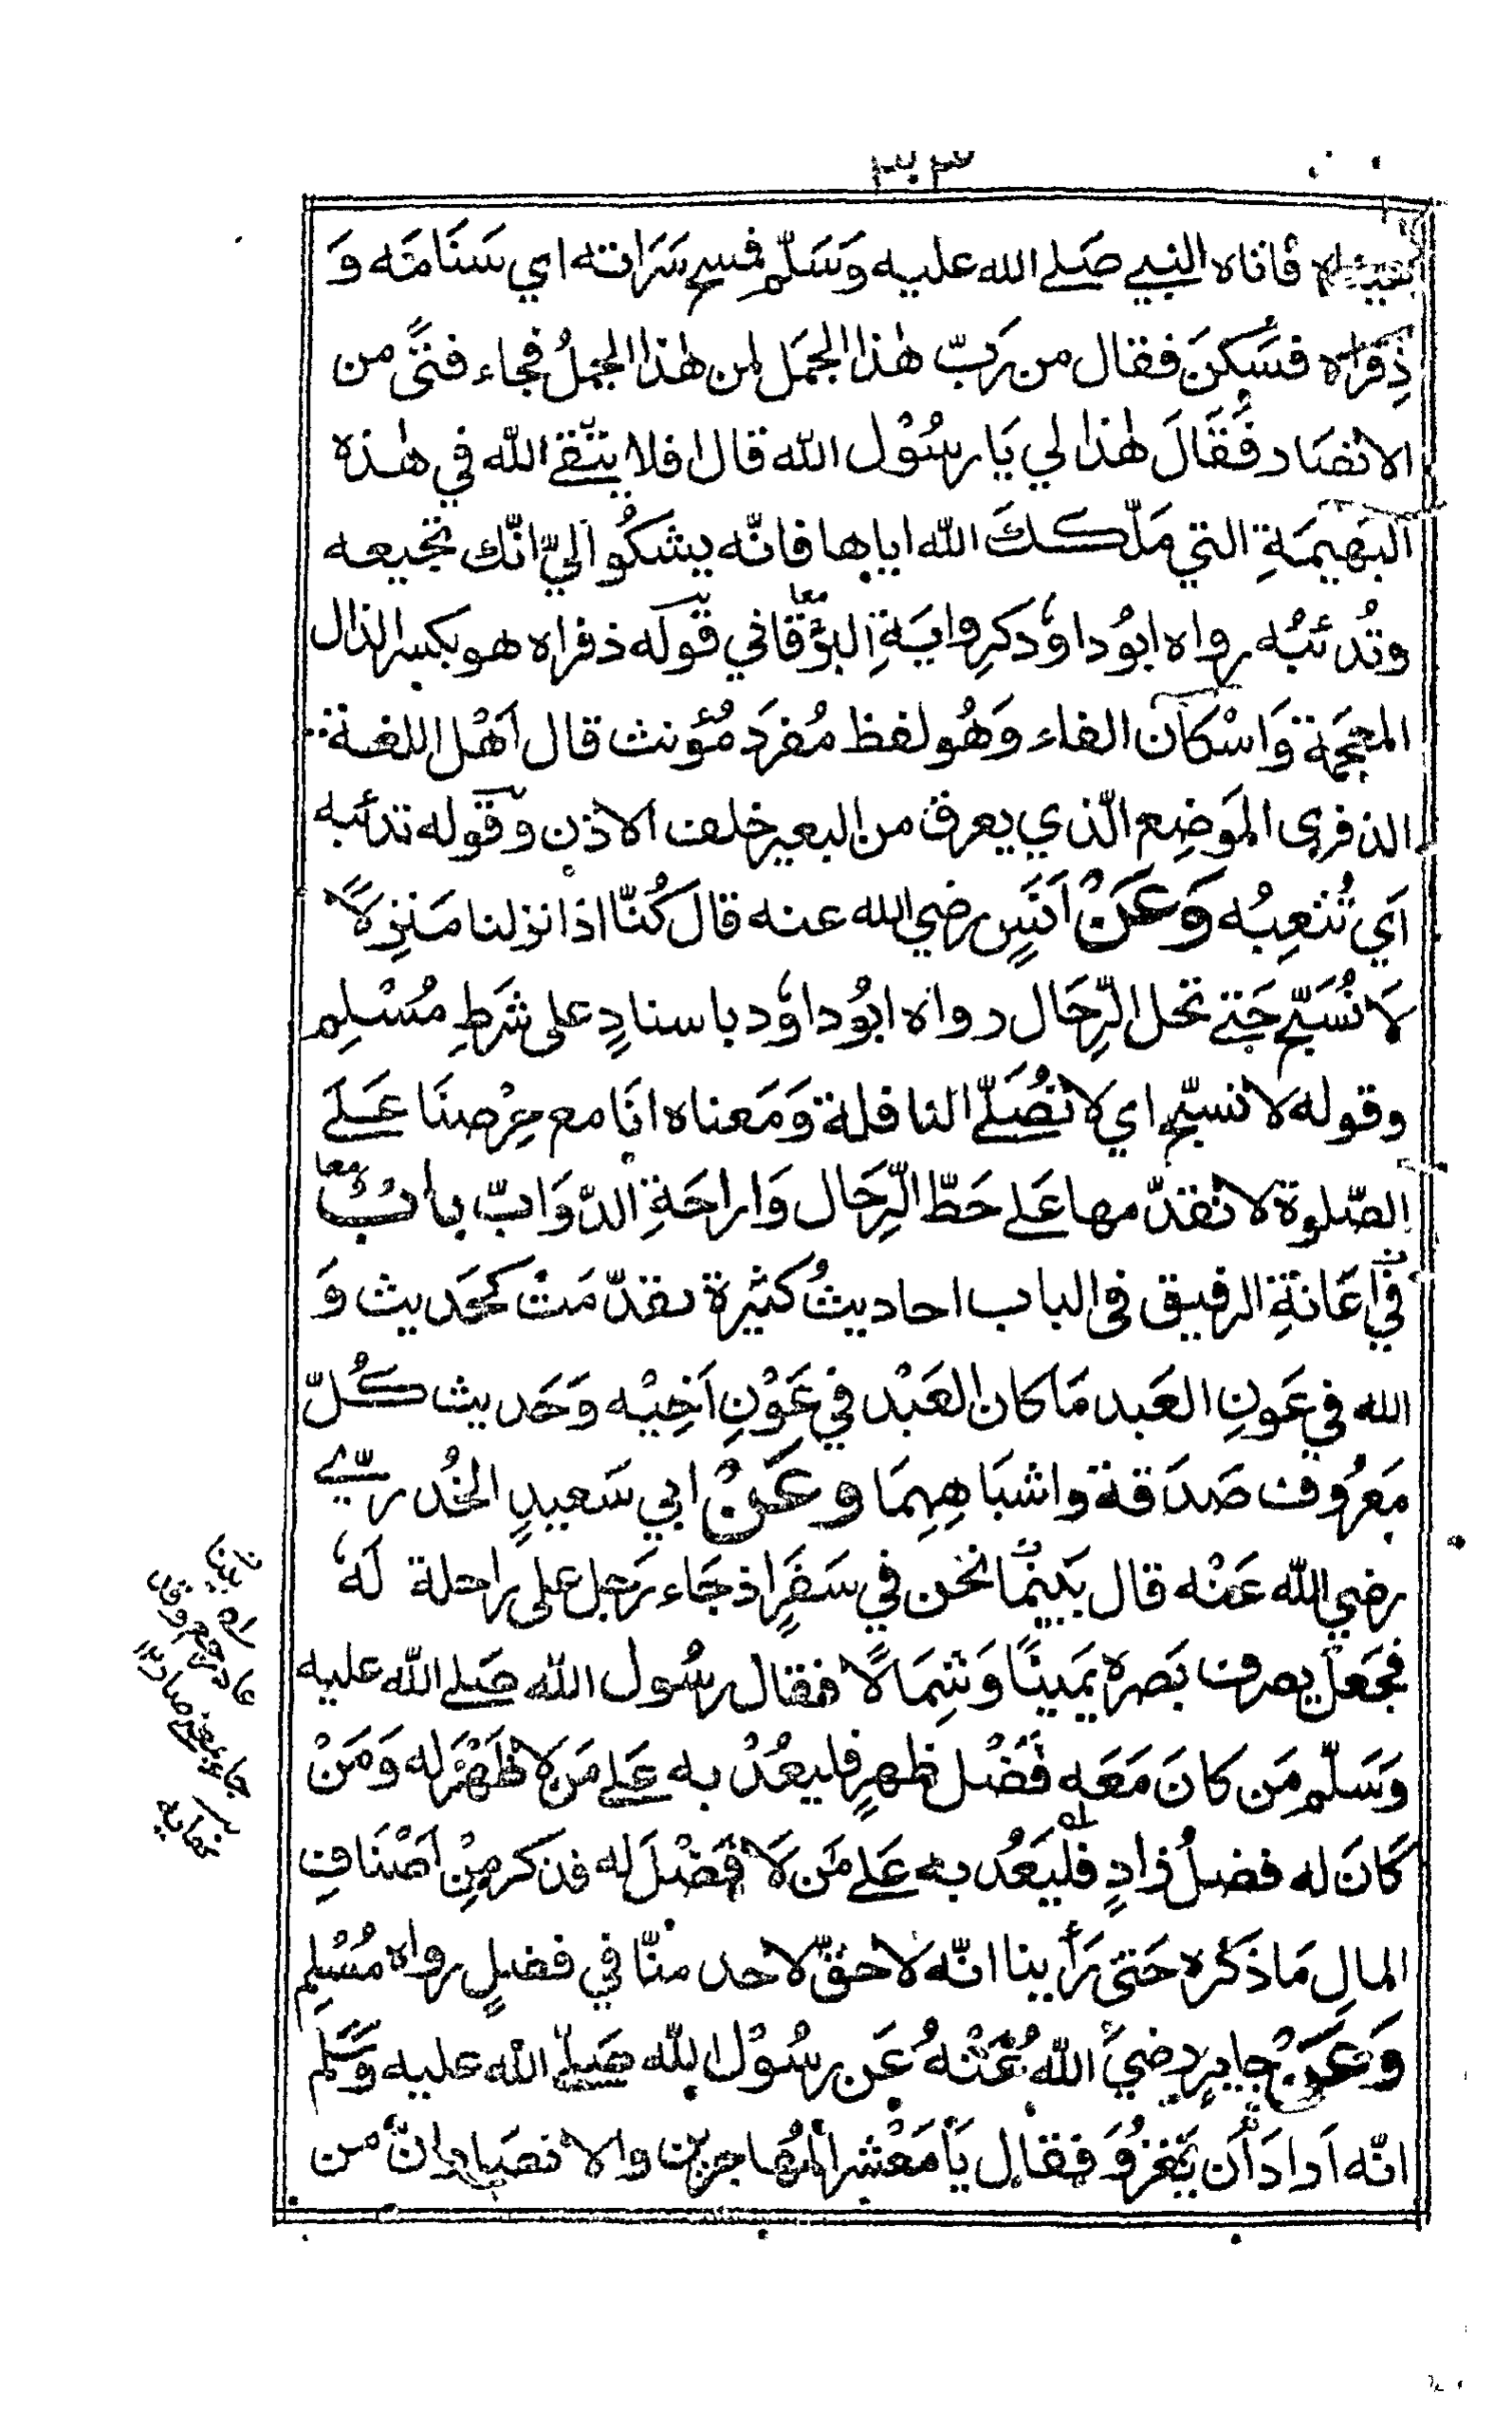 ٣٠٣
عيناه فاتاه النبي صَلے الله عليه وَسَلّم فمسح سَرَاته اي سَنَامَه وَ
ذِفرَاه فسَكنَ فقال من رَبّ هٰذا الجمَل لمن هٰذا الجملُ فجاء فتًى من
الانصَار فقَالَ هٰذا لي يَا رسُوْل الله قال افلا يتّقے الله في هٰذه
البَهِيمَةِ التي مَلّككَ الله اياها فانّه يشكُو اليّ انّك تجيعه
وتُدئبُه رواه ابوُ داوٗد كرِوايَةِ البرقاني قوله ذفراه هو بكسر الذال
المعجمة وَاسْكان الفاء وَهُو لفظ مُفرَد مُؤنث قال اَهْل اللغة
الذفرى الموَضِع الّذي يعرق من البعير خلف الاذن وقوله تدئبه
اَي تُتعِبُه وَعَنْ اَنَسٍ رضي الله عنه قال كُنّا اذا نزلنا مَنزِلًا
لَا نُسَبّح حَتے تحل الرِّحَال رواه ابوُ داوٗد باسنادٍ على شَرطِ مُسْلِم
وقوله لا نسبّح اي لا نُصَلّے النافلة وَمَعناه انَا مع حِرْصنَا عَلَے
الصّلوة لا نُقدّمها عَلے حَطّ الرِّحَال وَاراحَةِ الدّوَابّ بابُ
في اعَانَةِ الرفيق فى الباب احاديثُ كثيرة تقدّمَتْ كحَديث وَ
الله في عَونِ العَبد مَا كان العَبْد في عَوْنِ اَخِيْه وَحَديث كُلّ
مَعرُوف صَدَقة واشبَاهِهِمَا وعَنْ ابي سَعيدٍ الخُدريّے
رضي الله عَنْه قال بَينمَا نحن في سَفَرٍ اذ جَاء رَجل على راحلة لَهٗ
فجَعَلَ يصرف بَصره يَمينًا وَشِمَالًا فقال رسُول الله صَلے الله عليه
وَسَلّم مَن كانَ مَعَه فَضْل ظهرٍ فليعُدْ به عَلے مَن لا ظَهْرَ له وَمَنْ
كَانَ له فضلُ زادٍ فليَعُد به عَلے مَن لَا فَضْلَ له فذكر مِنْ اَصْنَافِ
المالِ مَا ذكَره حَتى رَأينا انّه لا حقّ لاحد منّا في فضلٍ رواه مُسْلِم
وَعَنْ جابرٍ رضيَ اللهُ عَنْهُ عَن رسُوْل الله صَلے الله عليه وَسَلّم
انّه اَرادَ اَن يَغزُوَ فقال يَا مَعْشر المُهاجرين والانصَار انّ من